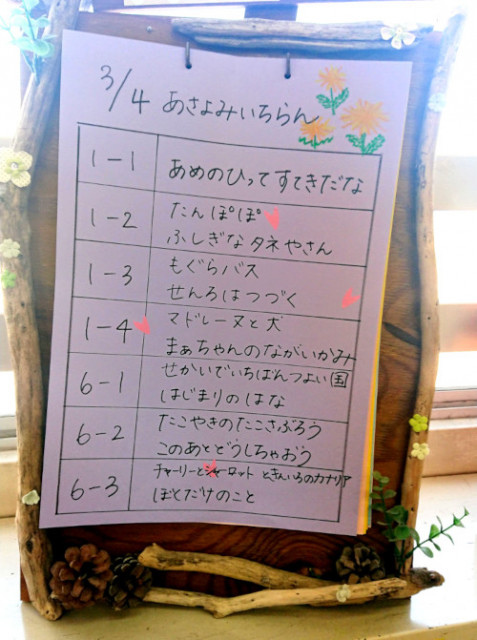 3/4 あさよみいちらん
1-1 あめのひってすてきだな
1-2 たんぽぽ
ふしぎなタネやさん
1-3 もぐらバス
せんろはつづく
1-4 マドレーヌと犬
まぁちゃんのながいかみ
6-1 せかいでいちばんつよい国
はじまりのはな
6-2 たこやきのたこさぶろう
このあとどうしちゃおう
6-3 チャーリーとシャーロットときんいろのカナリア
ぼくだけのこと